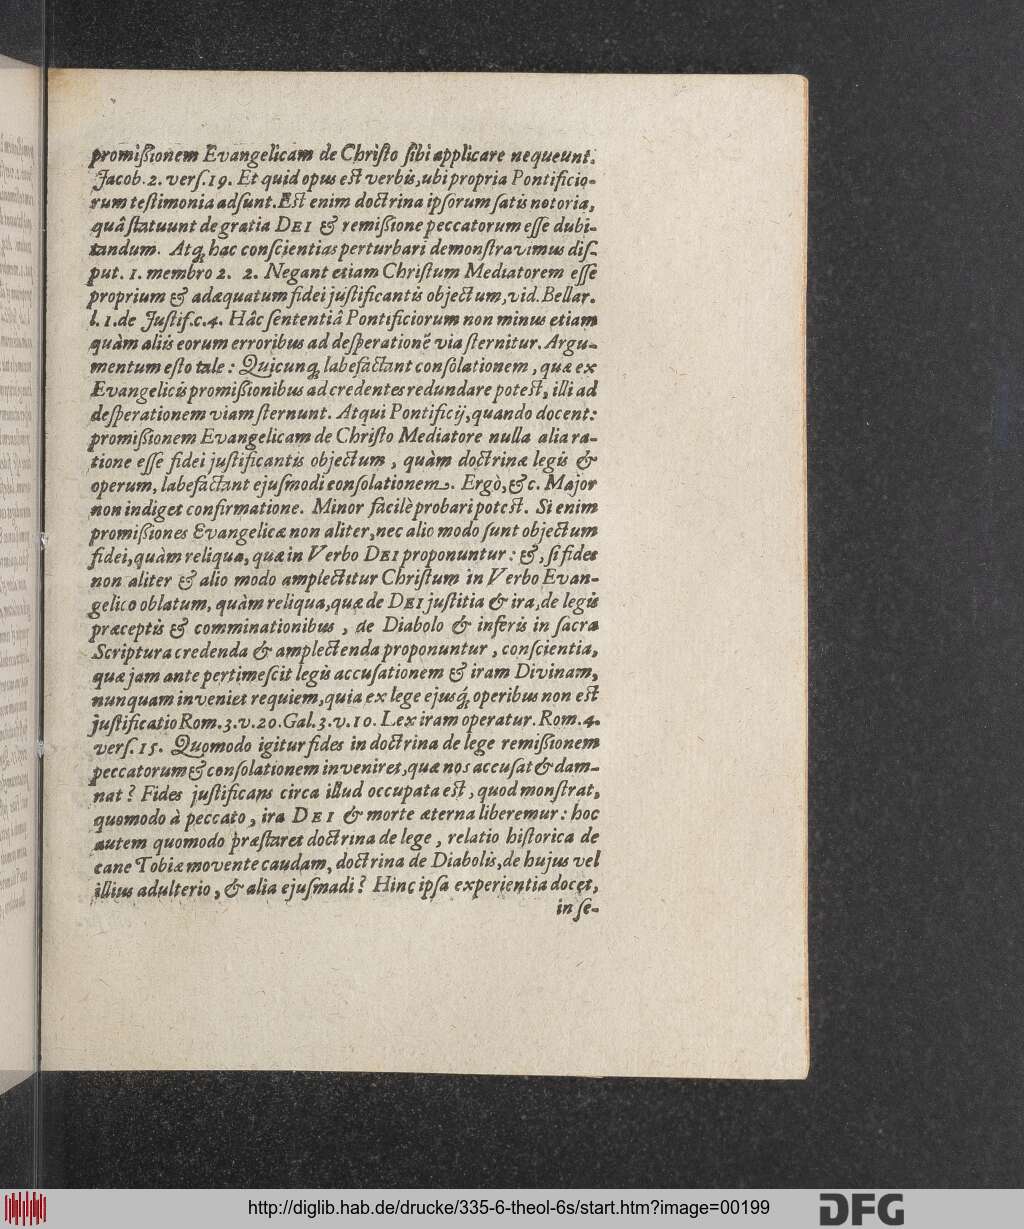 promißionem Evangelicam de Chriſto ſibi applicare nequeunt.
Jacob. 2. verſ. 19. Et quid opus est verbis, ubi propria Pontificio-
rum teſtimonia adſunt. Est enim doctrina ipſorum ſatis notoria,
quâ ſtatuunt de gratia DEI & remißione peccatorum eſſe dubi-
tandum. Atq; hac conſcientias perturbari demonſtravimus diſ-
put. 1. membro 2. 2. Negant etiam Chriſtum Mediatorem eſſe
proprium & adæquatum fidei juſtificantis objectum, vid. Bellar.
l. 1. de Juſtif. c. 4. Hâc ſententiâ Pontificiorum non minus etiam
quàm aliis eorum erroribus ad deſperationẽ via ſternitur. Argu-
mentum eſto tale: Quicunq; labefactant conſolationem, quæ ex
Evangelicis promißionibus ad credentes redundare potest, illi ad
deſperationem viam ſternunt. Atqui Pontificij, quando docent:
promißionem Evangelicam de Chriſto Mediatore nulla alia ra-
tione eſſe fidei juſtificantis objectum, quàm doctrinæ legis &
operum, labefactant ejuſmodi conſolationem. Ergò, &c. Major
non indiget confirmatione. Minor facilè probari potest. Si enim
promißiones Evangelicæ non aliter, nec alio modo ſunt objectum
fidei, quàm reliqua, quæ in Verbo DEI proponuntur: &, ſi fides
non aliter & alio modo amplectitur Chriſtum in Verbo Evan-
gelico oblatum, quàm reliqua, quæ de DEI juſtitia & ira, de legis
præceptis & comminationibus, de Diabolo & inferis in ſacra
Scriptura credenda & amplectenda proponuntur, conſcientia,
quæ jam ante pertimeſcit legis accuſationem & iram Divinam,
nunquam inveniet requiem, quia ex lege ejusq́; operibus non est
juſtificatio Rom. 3. v. 20. Gal. 3. v. 10. Lex iram operatur. Rom. 4.
verſ. 15. Quomodo igitur fides in doctrina de lege remißionem
peccatorum & conſolationem inveniret, quæ nos accuſat & dam-
nat? Fides juſtificans circa illud occupata est, quod monſtrat,
quomodo à peccato, ira DEI & morte æterna liberemur: hoc
autem quomodo præſtaret doctrina de lege, relatio hiſtorica de
cane Tobiæ movente caudam, doctrina de Diabolis, de hujus vel
illius adulterio, & alia ejuſmadi? Hinc ipſa experientia docet,
in ſe-
http://diglib.hab.de/drucke/335-6-theol-6s/start.htm?image=00199
DFG